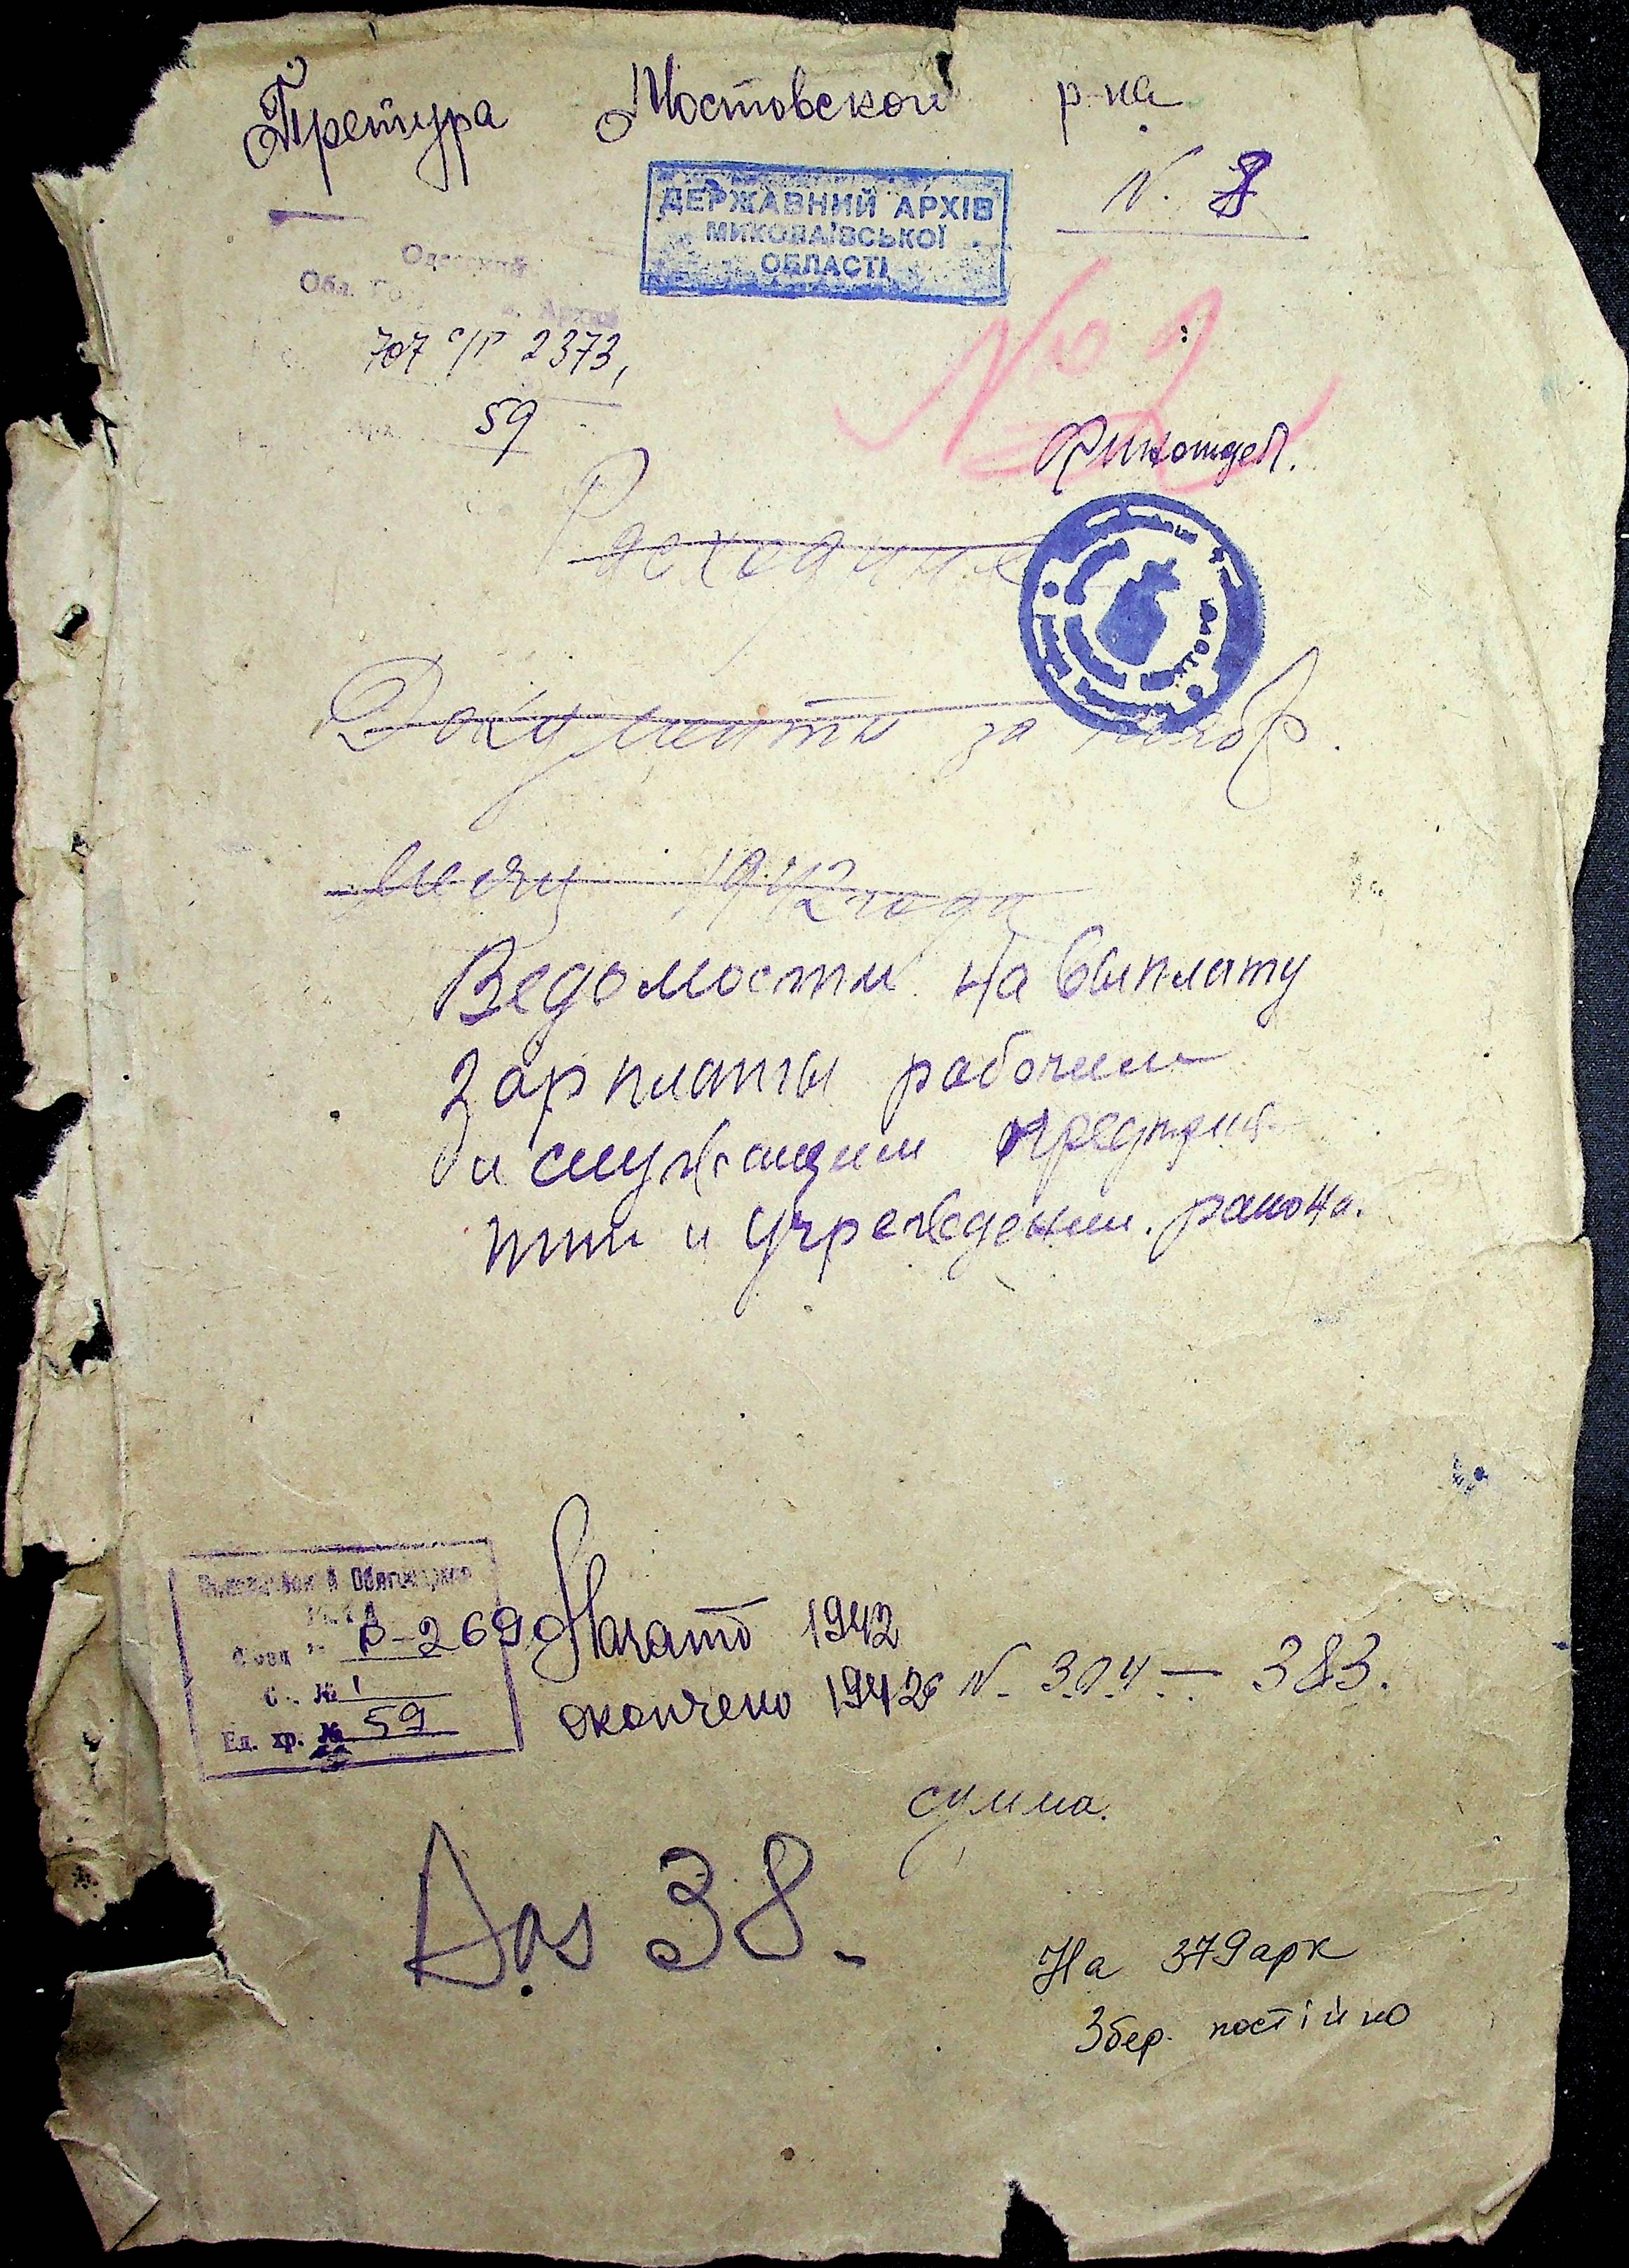 Претура Мостовской р-на
N. 8
ДЕРЖАВНИЙ АРХІВ
МИКОЛАЇВСЬКОЇ
ОБЛАСТІ
Одесский
Обл.
707 с/р 2373,
59
№
Финотдел.
Расходные
Документы за нояб.
месяц 1942 года
Ведомости на выплату
зарплаты рабочим
и служащим предприя
тий и учрежден. района.
Фонд Р-2690
О. № 1
Ед. хр. № 59
Начато 1942
окончено 1942
N. 304 — 383.
сумма.
Dos 38.
На 379 арк
Збер. постійно